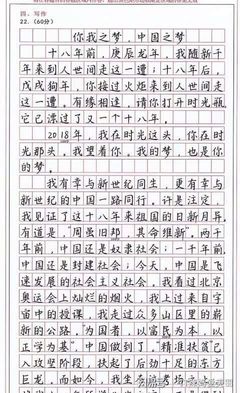 四、写作
22.（60分）
你我之梦，中国之梦
十八年前，庚辰龙年，我随新千
年来到人世间走这一遭；十八年后，
戊戌狗年，你接过火炬来到人世间走
这一遭。有缘相逢，请你打开时光瓶，
它已漂过了又一个十八年。
2018年，我在时光这头，你在时
光那头。我望着你。我的梦，也是你
的梦。
我有幸与新世纪同生，更有幸与
新世纪的中国一路同行，许是注定，
我见证了这十八年来祖国的日新月异。
有道是，“周虽旧邦，其命维新”，两千
年前，中国还是奴隶社会；一千年前，
中国还是封建社会；今天，中国是飞
速发展的社会主义社会。我看过北京
奥运会上灿烂的烟火，我上过来自宇
宙中的授课，我走过众多山区里的崭
新的公路。“为国者，以富民为本，以
正学为基”，中国做到了，“精准扶贫”已
入攻坚阶段，扶起了后劲十足的东方
巨龙，而如今，我坐在考场之上，